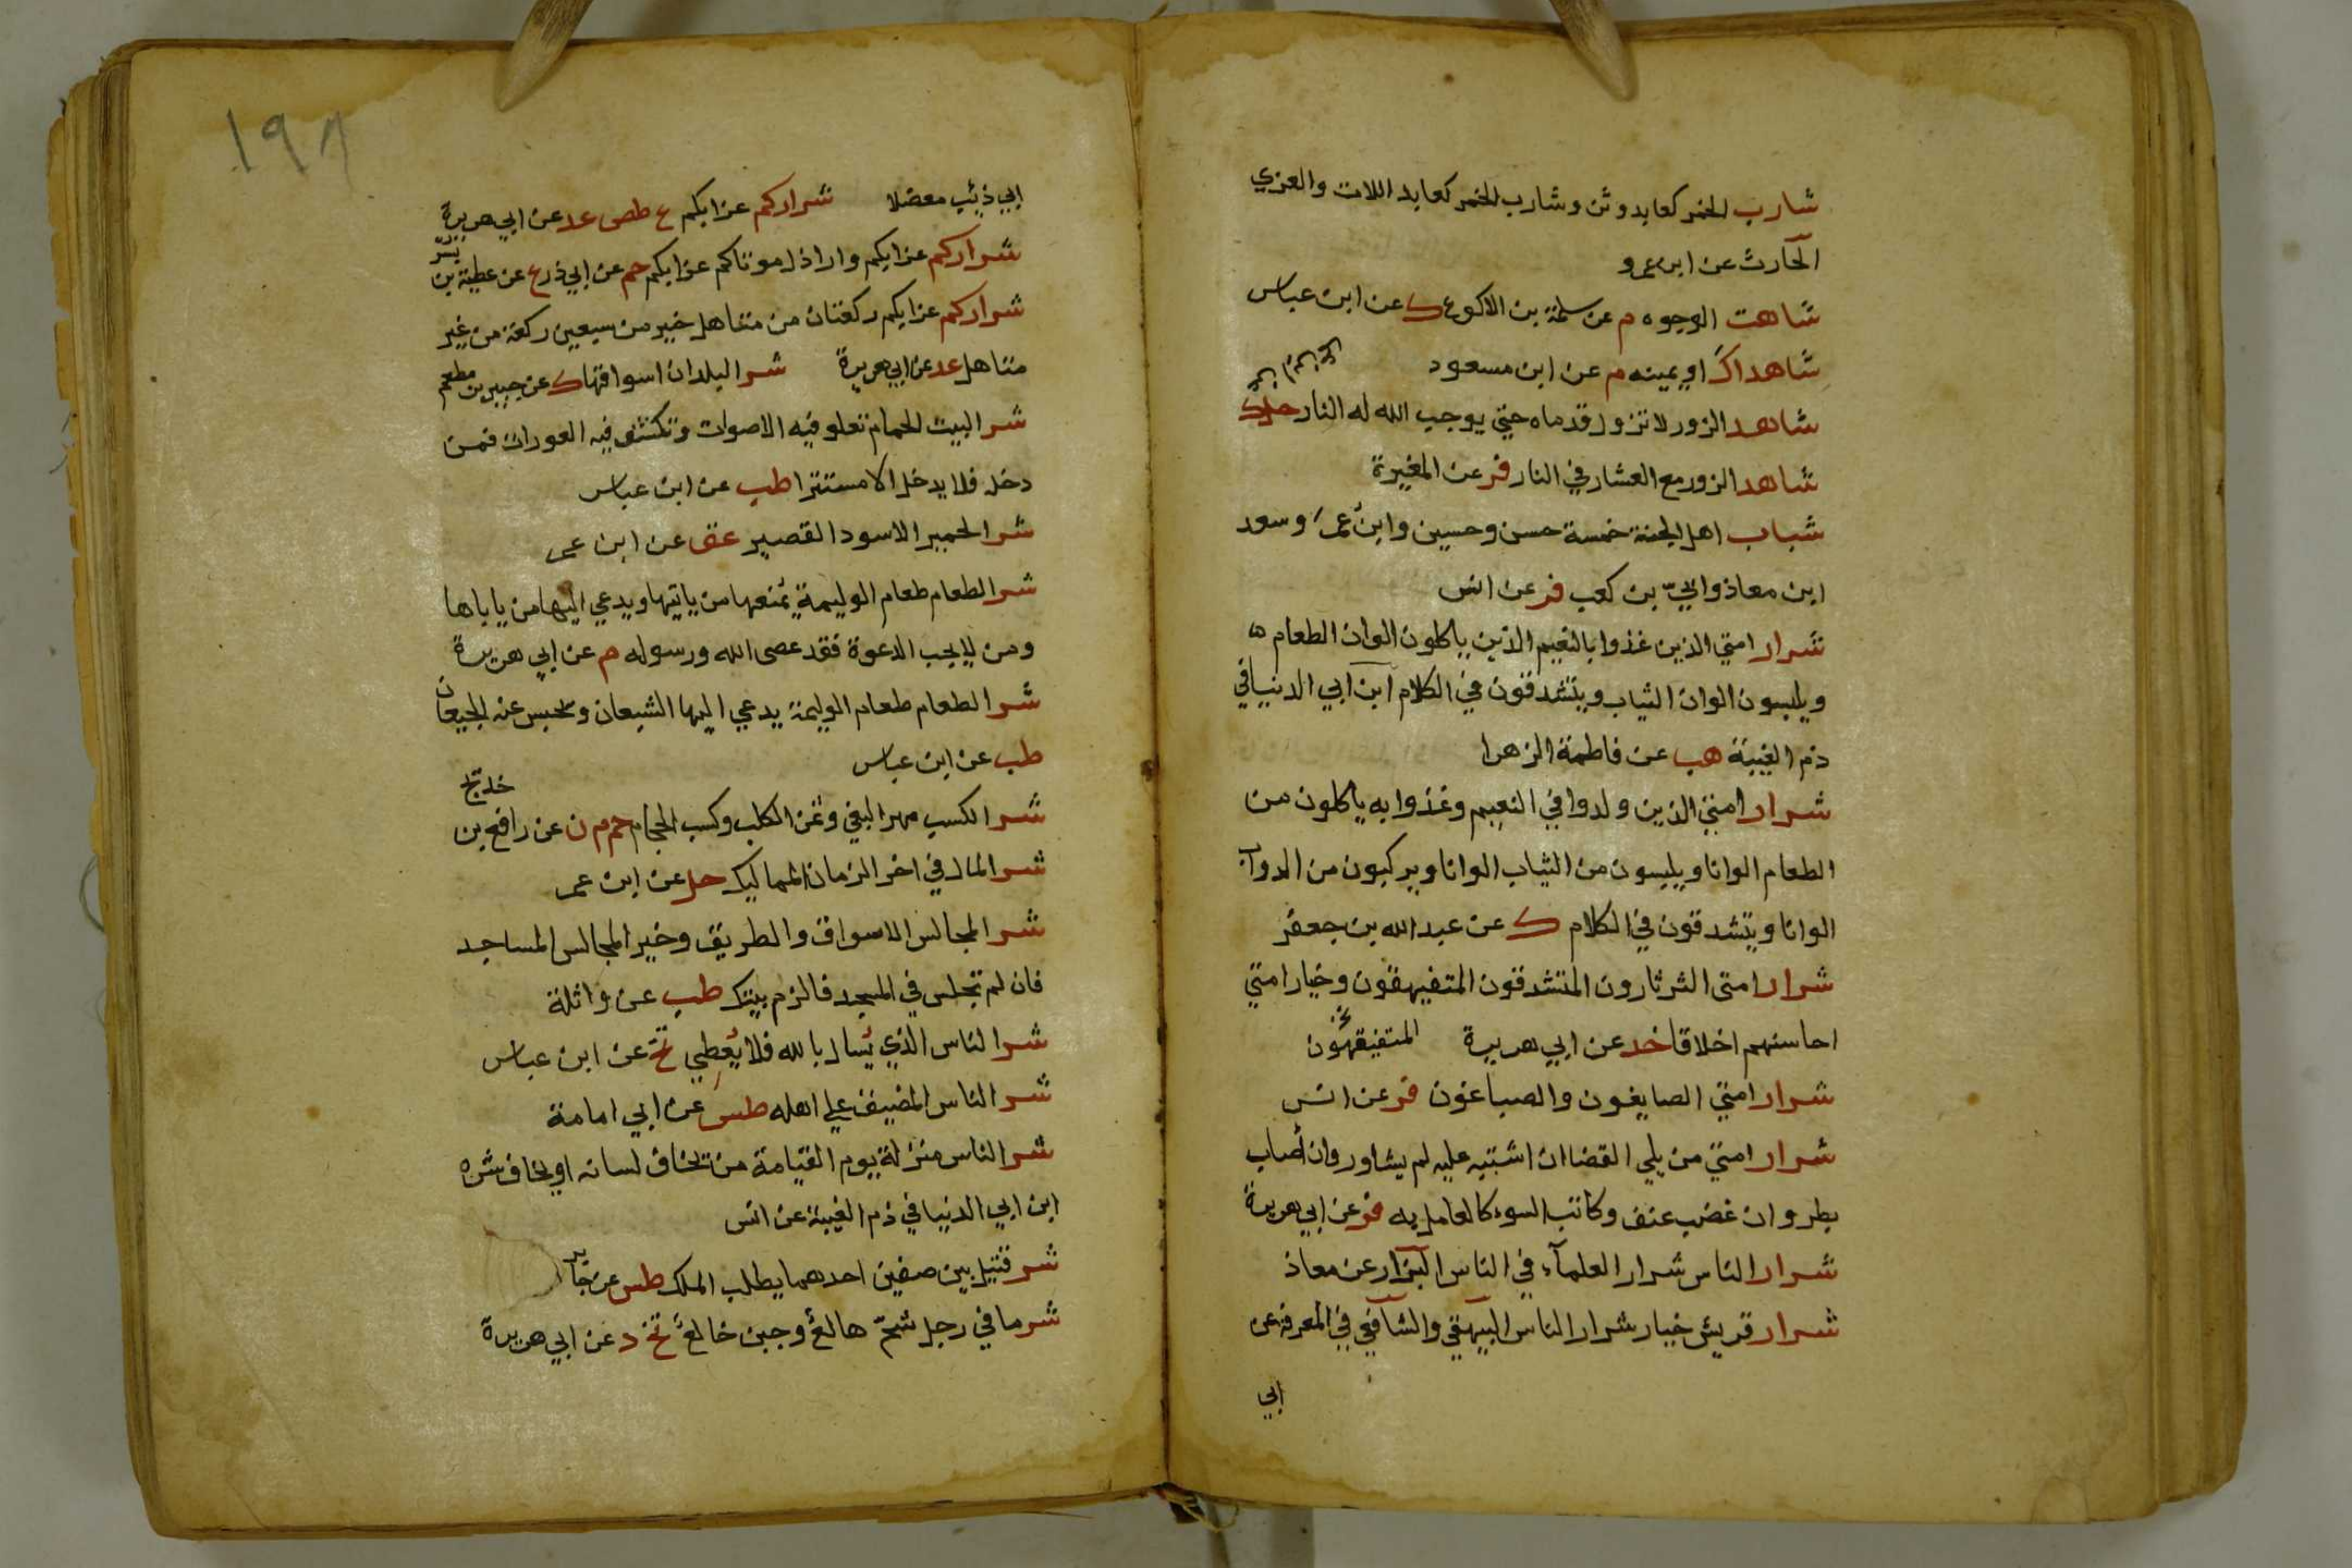 شارب الخمر كعابد وثن وشارب الخمر كعابد اللات والعزي
الحارث عن ابن عمرو
شاهت الوجوه م عن سلمة بن الاكوع ك عن ابن عباس
شاهداك او يمينه م عن ابن مسعود
شاهد الزور لا تزول قدماه حتي يوجب الله له النار حل ك
شاهد الزور مع العشار في النار فر عن المغيرة
شباب اهل الجنة خمسة حسن وحسين وابن عمر وسعد
ابن معاذ وابيّ بن كعب فر عن انس
شرار امتي الذين غذوا بالنعيم الذين ياكلون الوان الطعام
ويلبسون الوان الثياب ويتشدقون في الكلام ابن ابي الدنيا في
ذم الغيبة هب عن فاطمة الزهرا
شرار امتي الذين ولدوا في النعيم وغذوا به ياكلون من
الطعام الوانا ويلبسون من الثياب الوانا ويركبون من الدواب
الوانا ويتشدقون في الكلام ك عن عبد الله بن جعفر
شرار امتى الثرثارون المتشدقون المتفيهقون وخيار امتي
احاسنهم اخلاقا خد عن ابي هريرة المتفيقهون
شرار امتي الصايغون والصباغون فر عن انس
شرار امتي من يلي القضا ان اشتبه عليه لم يشاور وان أصاب
بطر وان غضب عنف وكاتب السوء كالعامل به فر عن ابي هريرة
شرار الناس شرار العلمآء في الناس البزار عن معاذ
شرار قريش خيار شرار الناس البيهقي والشافعي في المعرفة عن
ابي
١٩٨
ابي ذئب معضلا شراركم عزابكم ع طص عد عن ابي هريرة
شراركم عزابكم واراذل موتاكم عزابكم حم عن ابي ذر ع عن عطية بن بسر
شراركم عزابكم ركعتان من متاهل خير من سبعين ركعة من غير
متاهل عد عن ابي هريرة شر البلدان اسواقها ك عن جبير بن مطعم
شر البيت الحمام تعلو فيه الاصوات وتكشف فيه العورات فمن
دخله فلا يدخل الا مستترا طب عن ابن عباس
شر الحمير الاسود القصير عق عن ابن عمر
شر الطعام طعام الوليمة يمنعها من ياتيها ويدعي اليها من ياباها
ومن لا يجب الدعوة فقد عصى الله ورسوله م عن ابي هريرة
شر الطعام طعام الوليمة يدعي اليها الشبعان ويحبس عنه الجيعان
طب عن ابن عباس
شر الكسب مهر البغي وثمن الكلب وكسب الحجام حم م ن عن رافع بن خديج
شر المال في اخر الزمان المماليك حل عن ابن عمر
شر المجالس الاسواق والطريق وخير المجالس المساجد
فان لم تجلس في المسجد فالزم بيتك طب عن واثلة
شر الناس الذي يسال بالله فلا يُعطِي تخ عن ابن عباس
شر الناس المضيق علي اهله طس عن ابي امامة
شر الناس منزلة يوم القيامة من يخاف لسانه او يخاف شره
ابن ابي الدنيا في ذم الغيبة عن انس
شر قتيل بين صفين احدهما يطلب الملك طس عن جابر
شر ما في رجل شحّ هالع وجبن خالع تخ د عن ابي هريرة